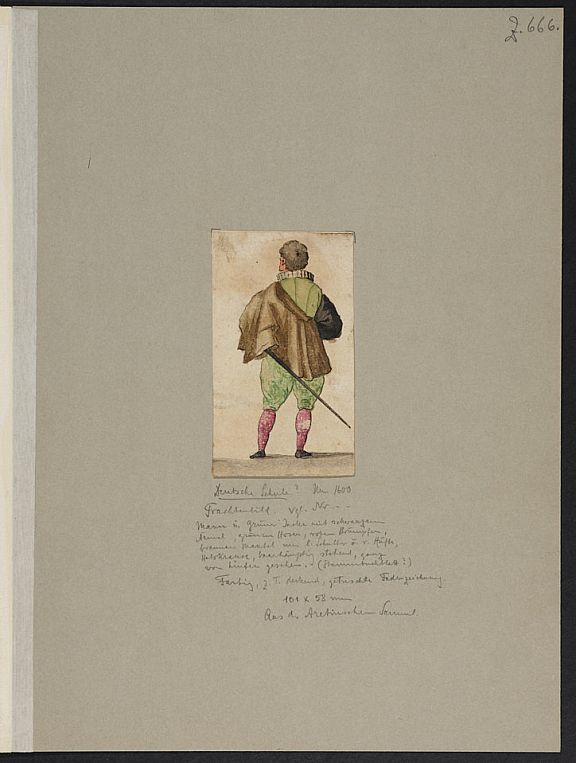 Z. 666.
Deutsche Schule? Um 1600
Trachtenbild. Vgl. Nr. - -
Mann in grüner Jacke mit schwarzem
Ärmel, grünen Hosen, rosa Strümpfen,
braunem Mantel um l. Schulter u. r. Hüfte,
Halskrause, barhäuptig stehend, ganz
von hinten gesehen. - (Stammbuchblatt?)
Farbig, z. T. deckend, getuschte Federzeichnung.
101 x 58 mm
Aus d. Aretinschen Samml.